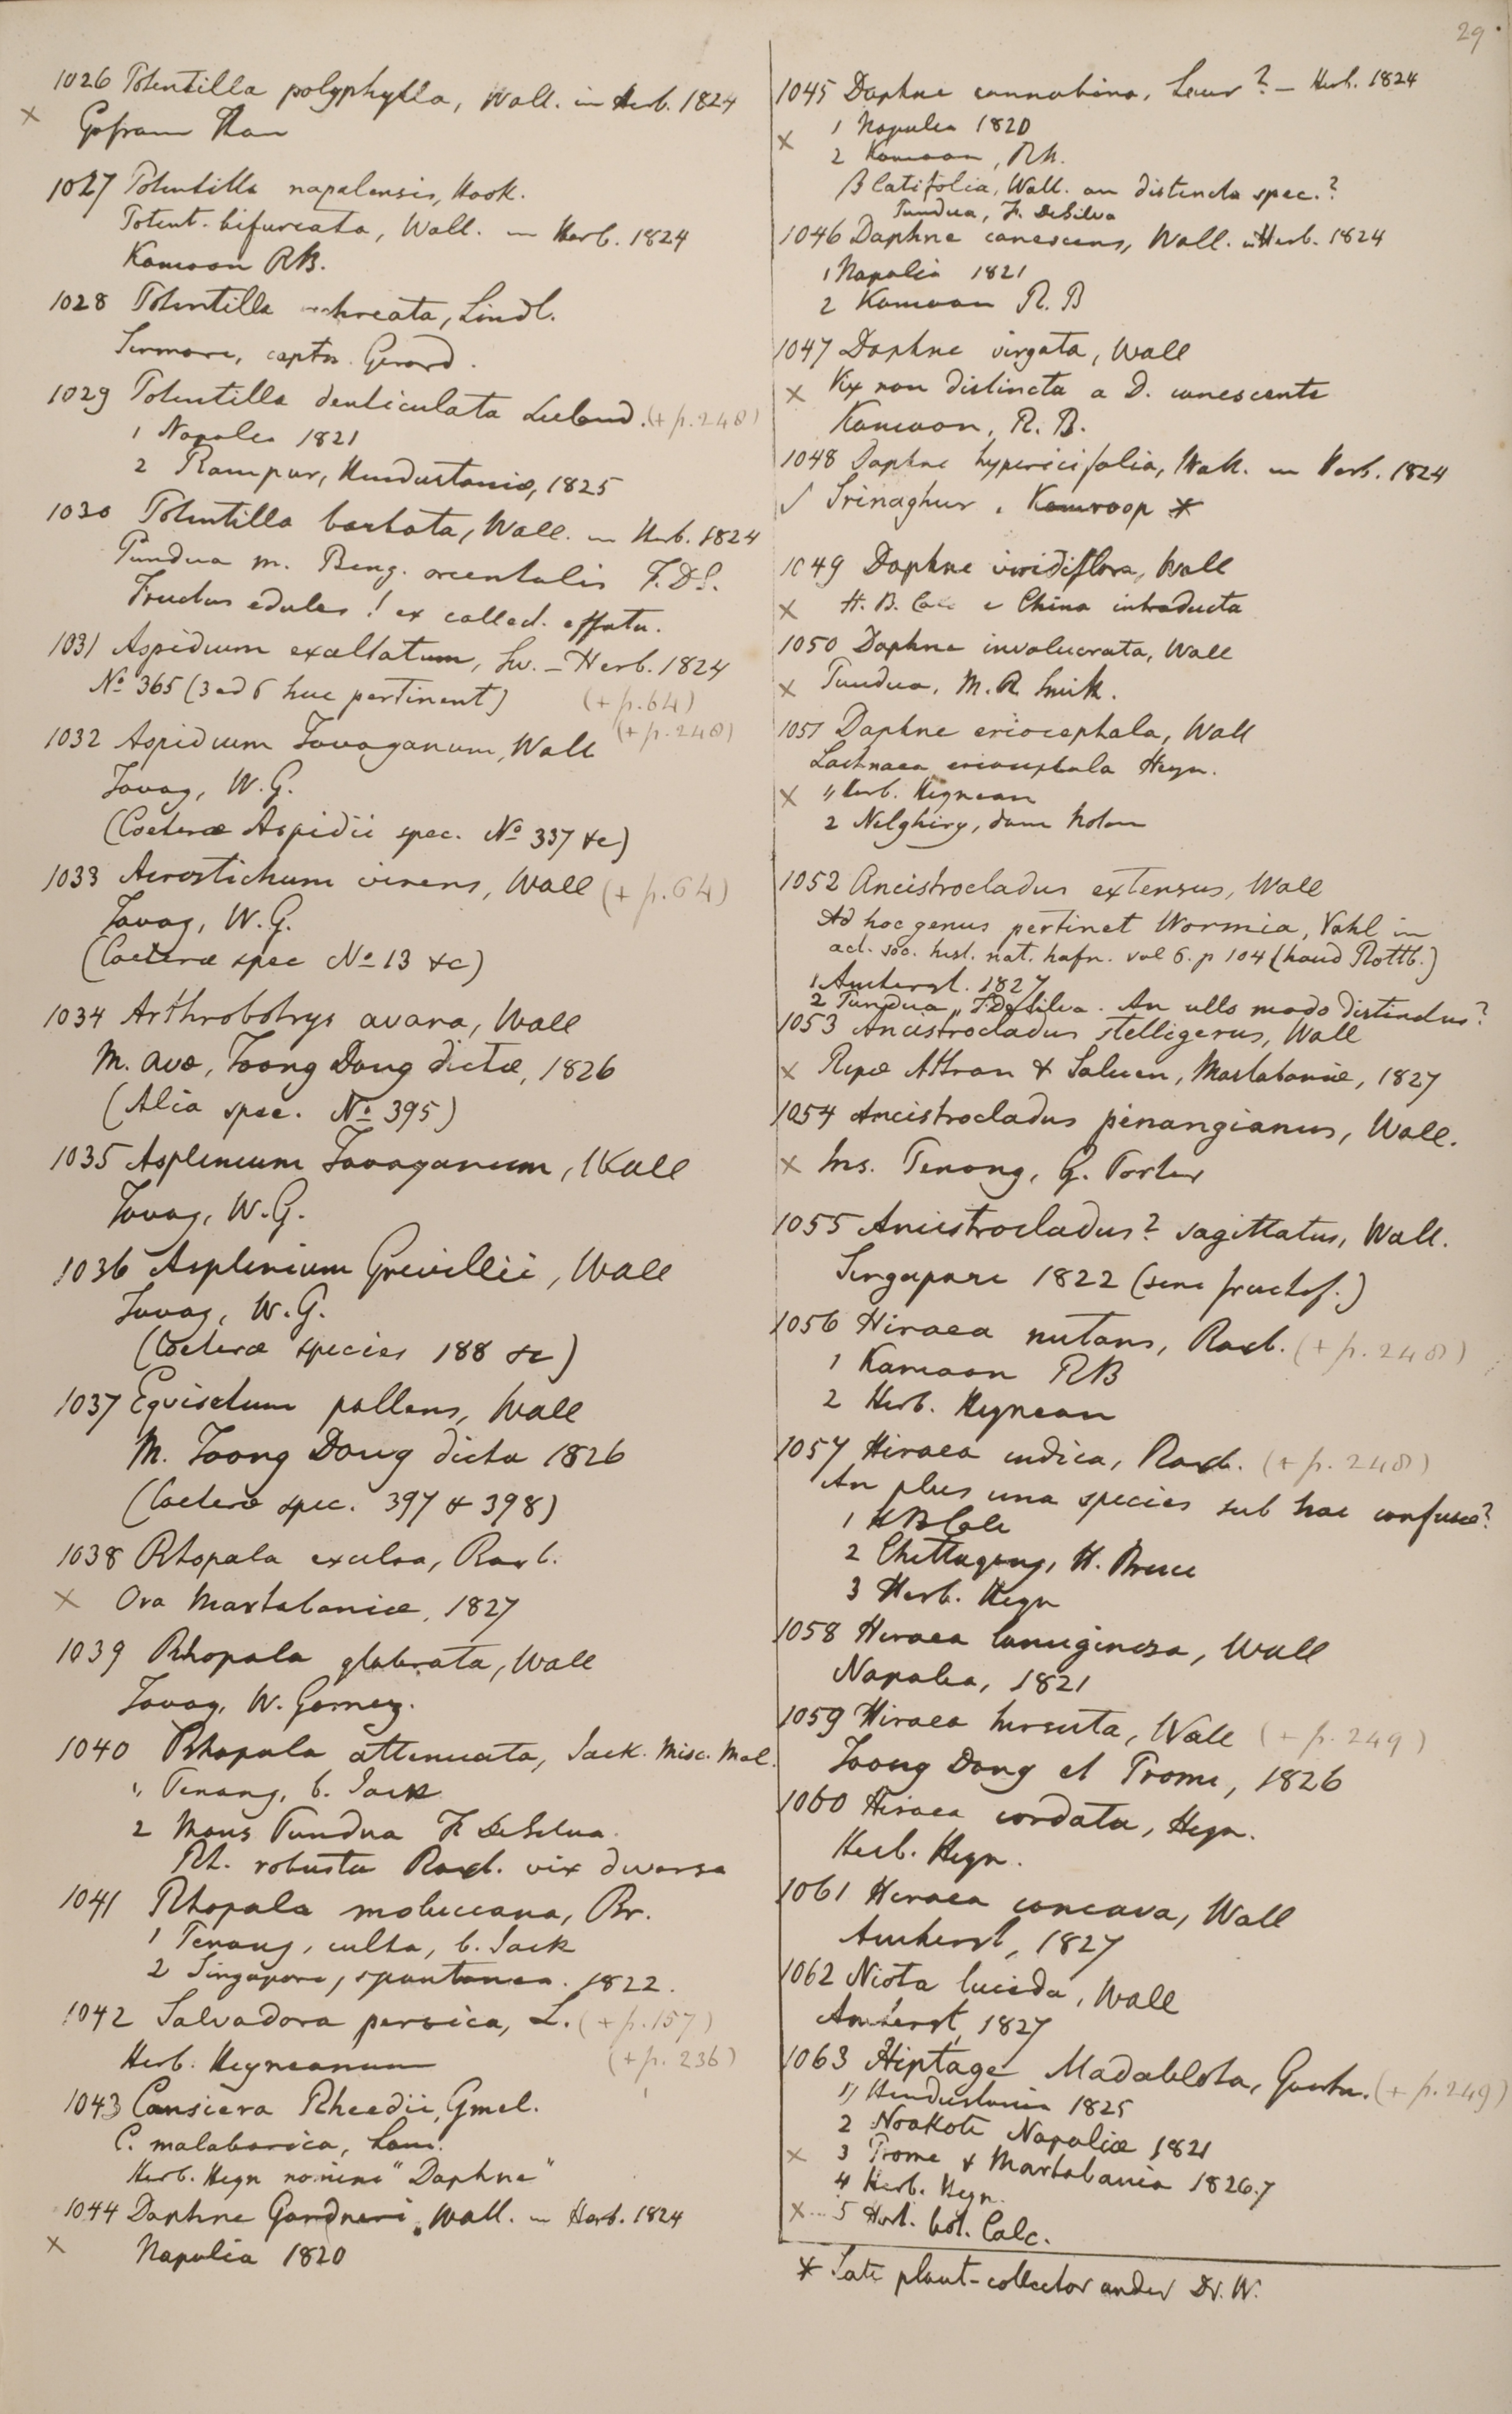 29
1026 Potentilla polyphylla, Wall. in Herb. 1824
× Gosram Than
1027 Potentilla napalensis, Hook.
Potent. bifurcata, Wall. in Herb. 1824
Kamoon RB.
1028 Potentilla ochreata, Lindl.
Sermore, captn. Gerard.
1029 Potentilla denticulata (+ p. 248)
1 Napalia 1821
2 Rampur, Hindustaniæ, 1825
1030 Potentilla barbata, Wall. in Herb. 1824
Pundua m. Beng. orientalis F.DS.
Fructus edules! ex collect. effatu.
1031 Aspidium exaltatum, Sw. – Herb. 1824
No 365 (3 ad 6 huc pertinent) (+ p. 64)
1032 Aspidium Tavoyanum, Wall (+ p. 248)
Tavoy, W.G.
(Coeteræ Aspidii spec. No 337 &c)
1033 Acrostichum virens, Wall (+ p. 64)
Tavoy, W.G.
(Coeteræ spec No 13 &c)
1034 Arthrobotrys avana, Wall
M. avæ, Toong Dong dictæ, 1826
(Alia spec. No 395)
1035 Asplenium Tavoyanum, Wall
Tavoy, W.G.
1036 Asplenium Grevillii, Wall
Tavoy, W.G.
(Coeteræ species 188 &c)
1037 Equisetum pallens, Wall
M. Toong Dong dicta 1826
(Coeteræ spec. 397 & 398)
1038 Rhopala excelsa, Roxb.
× Ora Martabaniæ, 1827
1039 Rhopala glabrata, Wall
Tavoy, W. Gomez.
1040 Rhopala attenuata, Jack. Misc. Mal.
1, Penang, G. Jack
2 Mons Pundua F. DeSilva.
Rh. robusta Roxb. vix diversa
1041 Rhopala moluccana, Br.
1 Penang, culta, G. Jack
2 Singapore, spontanea. 1822.
1042 Salvadora persica, L. (+ p. 157)
Herb. Heyneanum (+ p. 236)
1043 Cansiera Rheedii, Gmel.
C. malabarica, Lam.
Herb. Heyn nomine "Daphne"
1044 Daphne Gardneri, Wall. in Herb. 1824
× Napalia 1820
1045 Daphne cannabina, Lour? – Herb. 1824
1 Napalia 1820
× 2 Kamoon, RB.
β latifolia, Wall. an distincta spec.?
Pundua, F. DeSilva
1046 Daphne canescens, Wall. in Herb. 1824
1 Napalia 1821
2 Kamoon R. B
1047 Daphne virgata, Wall
× Vix non distincta a D. canescente
Kamoon, R. B.
1048 Daphne hypericifolia, Wall. in Herb. 1824
√ Srinaghur, Kamroop *
1049 Daphne viridiflora, Wall
× H. B. Calc e China introducta
1050 Daphne involucrata, Wall
× Pundua, M. R. Smith.
1051 Daphne eriocephala, Wall
Lachnaea eriocephala Heyn.
× 1, Herb. Heynean
2 Nilghiry, dom Noton
1052 Ancistrocladus extensus, Wall
Ad hoc genus pertinet Wormia, Vahl in
act. soc. hist. nat. hafn. vol 6. p 104 (haud Rottb.)
1 Amherst. 1827
2 Pundua, F.DeSilva. An ullo modo distinctus?
1053 Ancistrocladus stelligerus, Wall
× Ripæ Attran & Saluen, Martabaniæ, 1827
1054 Ancistrocladus pinangianus, Wall.
× Ins. Penang, G. Porter
1055 Ancistrocladus? sagittatus, Wall.
Singapore 1822 (sine fructif.)
1056 Hiraea nutans, Roxb. (+ p. 248)
1 Kamoon RB
2 Herb. Heynean
1057 Hiraea indica, Roxb. (+ p. 248)
An plus una species sub hac confusæ?
1 HBCalc
2 Chittagong, H. Bruce
3 Herb. Heyn
1058 Hiraea lanuginosa, Wall
Napalia, 1821
1059 Hiraea hirsuta, Wall (+ p. 249)
Toong Dong et Prome, 1826
1060 Hiraea cordata, Heyn.
Herb. Heyn.
1061 Hiraea concava, Wall
Amherst, 1827
1062 Niota lucida, Wall
Amherst, 1827
1063 Hiptage Madablota, Gaertn. (+ p. 249)
1, Hindustania 1825
2 Noakote Napaliæ 1821
× 3 Prome & Martabania 1826.7
4 Herb. Heyn.
× ... 5 Hort. bot. Calc.
* Late plant-collector under Dr. W.